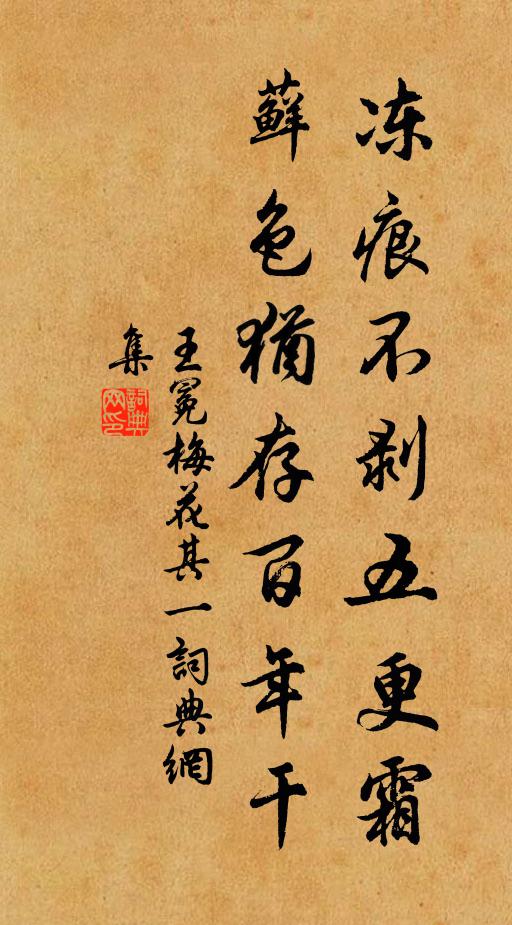 冻痕不剥五更霜
藓色犹存百年干
王冕梅花其一詞典網
集
詞典
网印